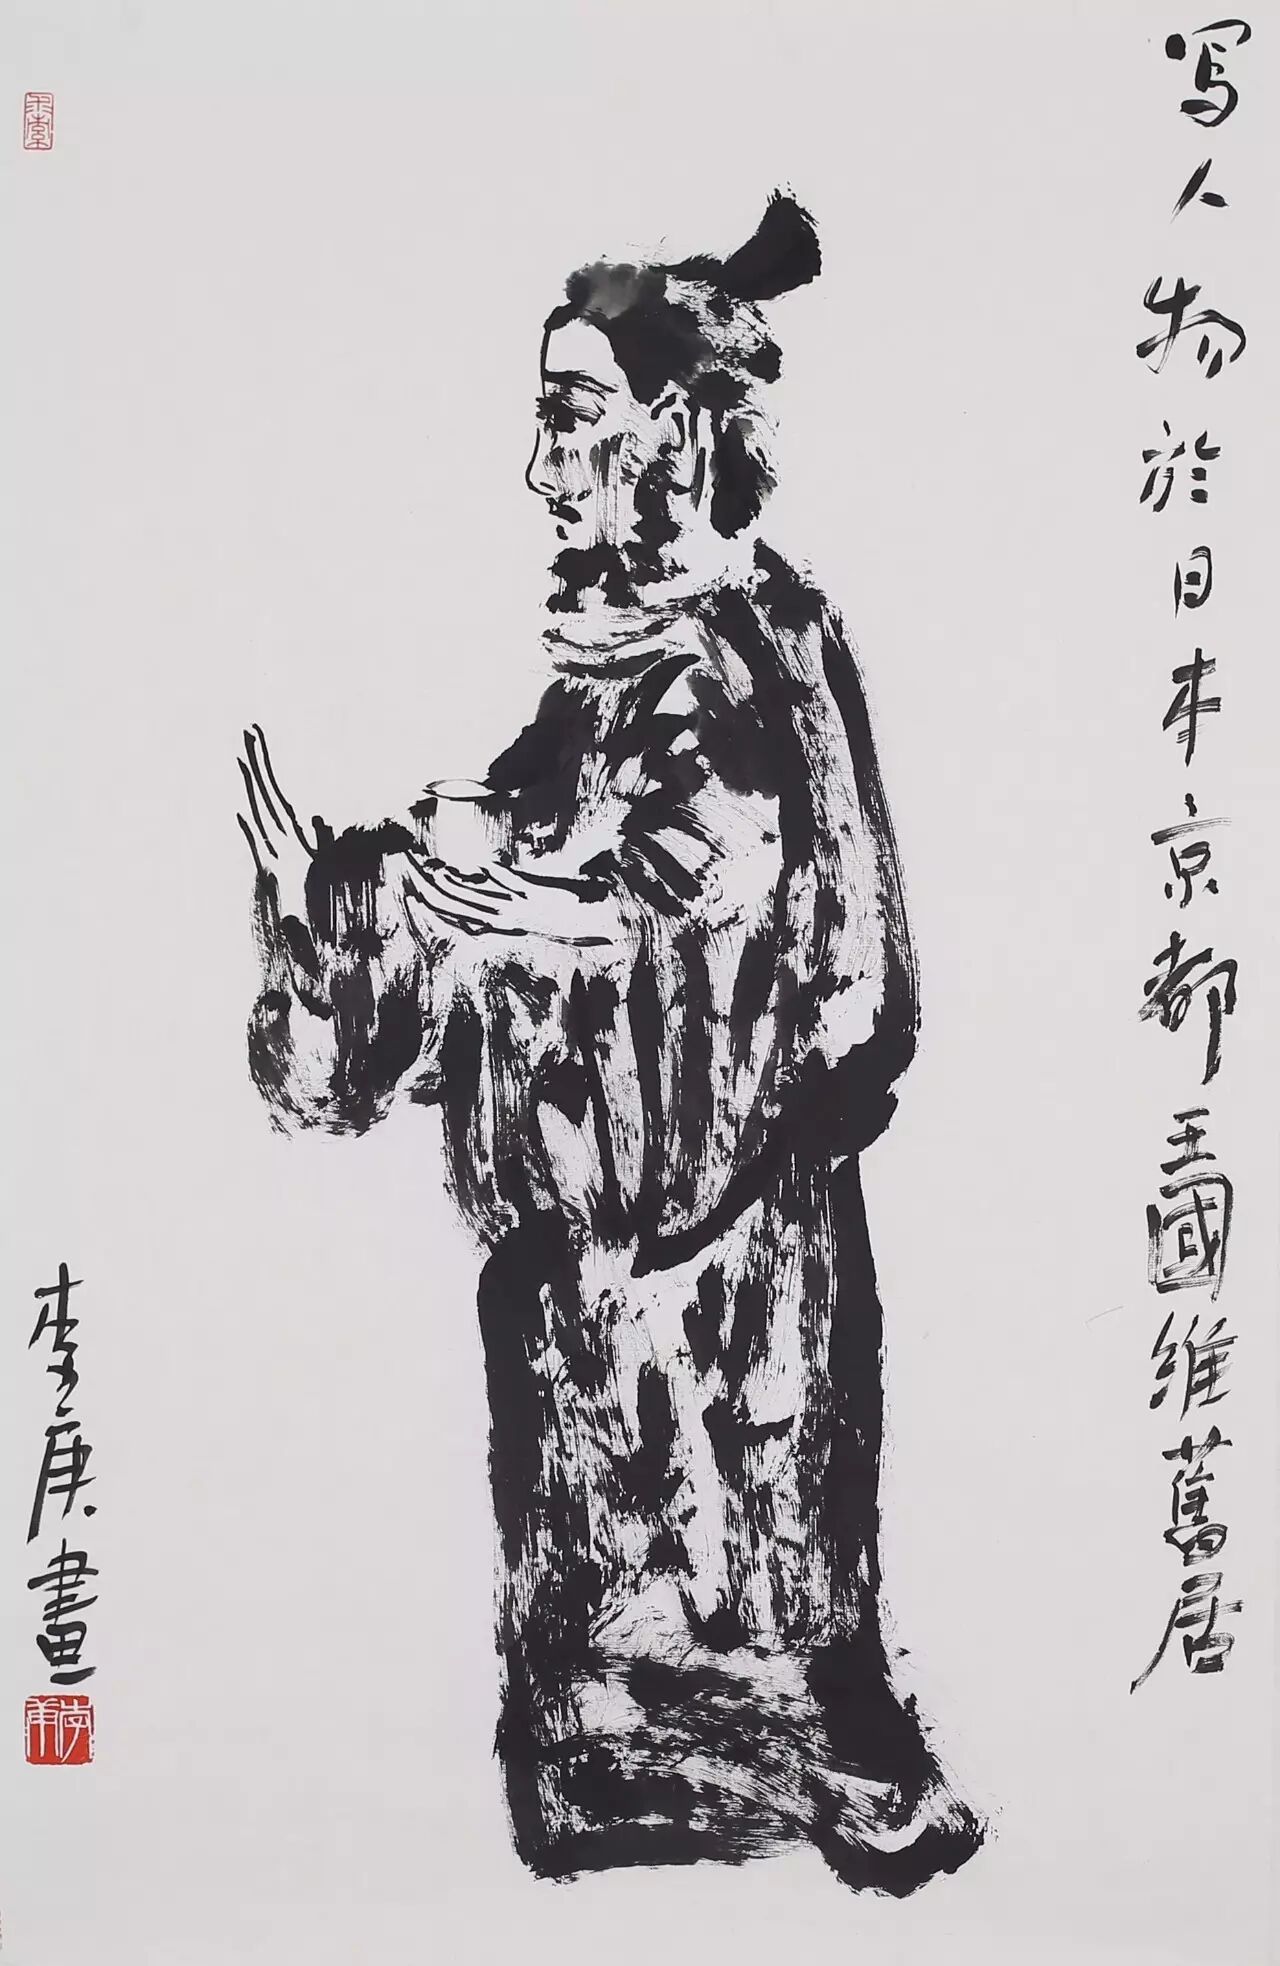 写人物於日本京都王國維舊居
李庚畫
李庚